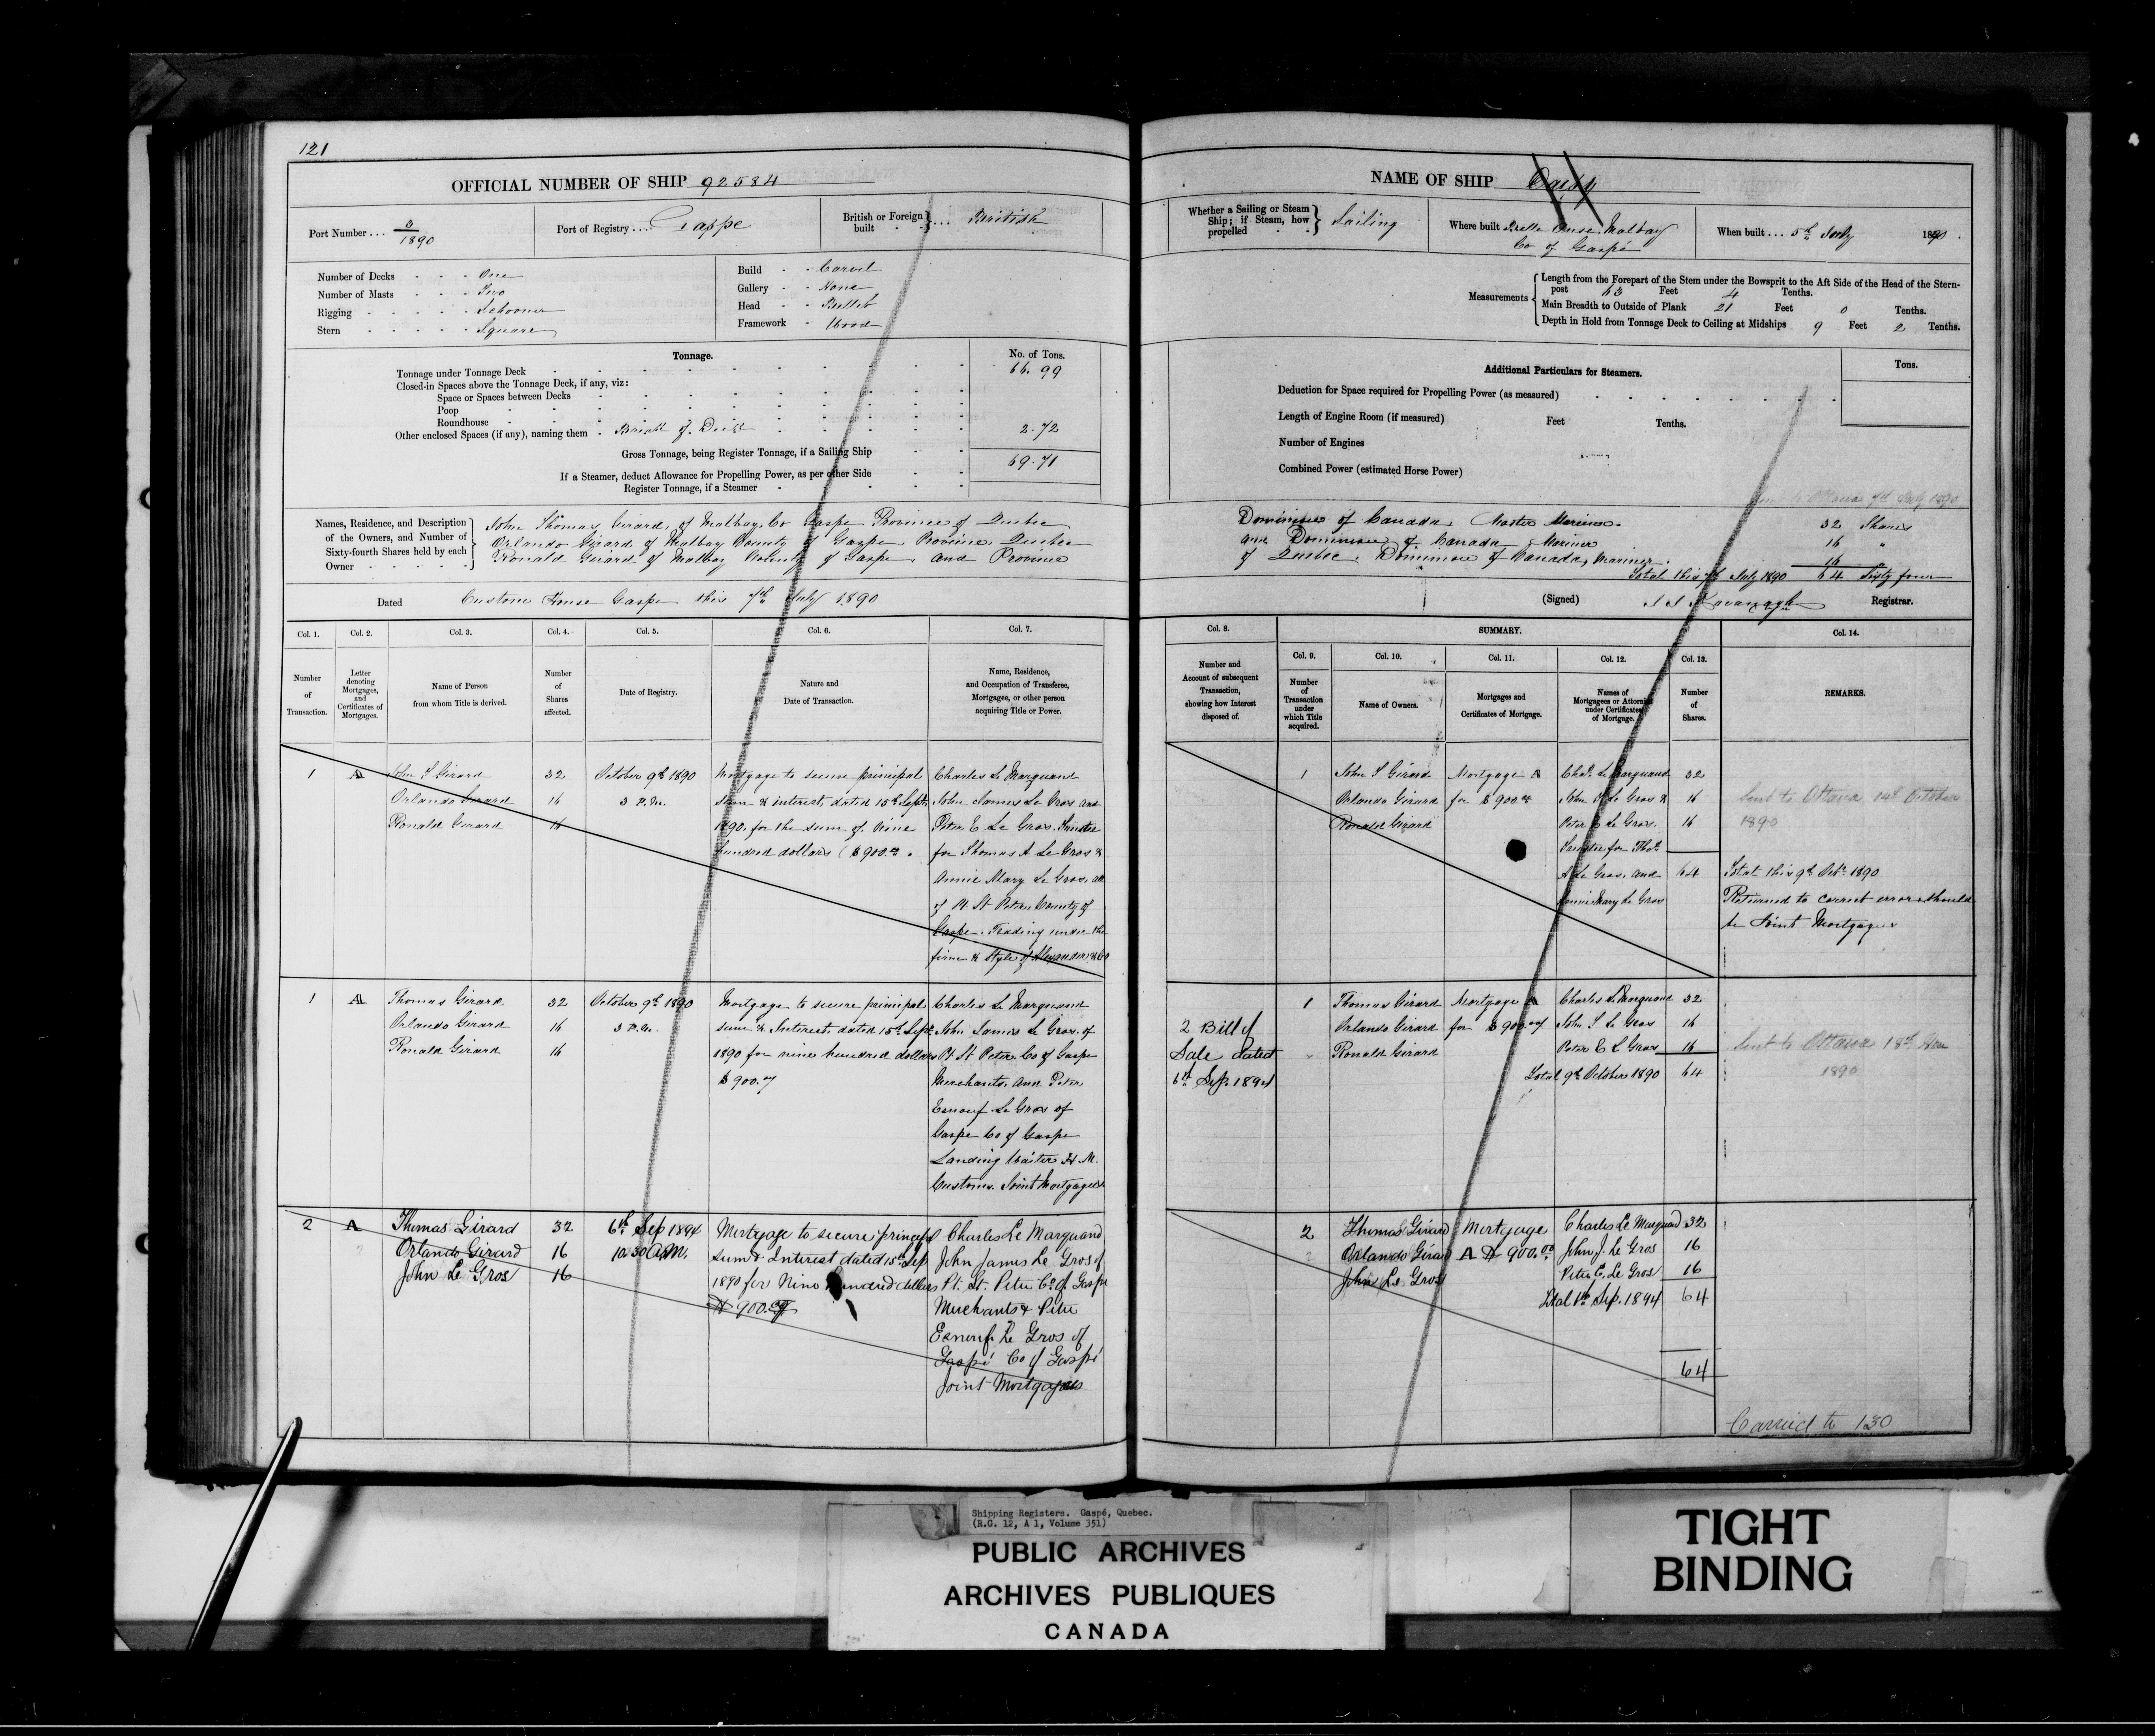 121
OFFICIAL NUMBER OF SHIP 92584
Port Number . . . 3/1890
Port of Registry . . . . Gaspe
British or Foreign built } . . . British
Number of Decks - - - One
Number of Masts - - - Two
Rigging - - - - - Schooner
Stern - - - - - Square
Build - - Carvel
Gallery - - None
Head - - Billet
Framework - Wood
Tonnage.
No. of Tons.
Tonnage under Tonnage Deck 66.99
Closed-in Spaces above the Tonnage Deck, if any, viz:
Space or Spaces between Decks
Poop
Roundhouse
Other enclosed Spaces (if any), naming them - Break of Deck 2.72
Gross Tonnage, being Register Tonnage, if a Sailing Ship 69.71
If a Steamer, deduct Allowance for Propelling Power, as per other Side
Register Tonnage, if a Steamer
Names, Residence, and Description of the Owners, and Number of Sixty-fourth Shares held by each Owner
John Thomas Girard, of Malbay Co Gaspe Province of Quebec
Orlando Girard of Malbay County of Gaspe, Province Quebec
Ronald Girard of Malbay County of Gaspe, and Province
Dated Custom House Gaspe this 7th July 1890
Col. 1. Col. 2. Col. 3. Col. 4. Col. 5. Col. 6. Col. 7.
Number of Transaction.
Letter denoting Mortgages, and Certificates of Mortgages.
Name of Person from whom Title is derived.
Number of Shares affected.
Date of Registry.
Nature and Date of Transaction.
Name, Residence, and Occupation of Transferee, Mortgagee, or other person acquiring Title or Power.
1 A John T Girard 32 October 9th 1890 Mortgage to secure principal Charles Le Marquand
Orlando Girard 16 3 P.M. sum & interest, dated 15th Sept. John James Le Gros and
Ronald Girard 16 1890. for the sum of Nine Peter E Le Gros. Trustee
hundred dollars ($900.00. for Thomas A Le Gros &
Annie Mary Le Gros, all
of Pt St Peter, County of
Gaspe. Trading under the
firm & Style of Alexander & Co
1 A Thomas Girard 32 October 9th 1890 Mortgage to secure principal Charles Le Marquand
Orlando Girard 16 3 P.M. sum & Interest, dated 15th Sept. John James Le Gros, of
Ronald Girard 16 1890 for nine hundred dollars Pt St Peter, Co of Gaspe
$900. Merchants, and Peter
Esnouf Le Gros of
Gaspe Co of Gaspe
Landing Waiter H. M.
Customs. Joint Mortgagees
2 A Thomas Girard 32 6th Sep 1894 Mortgage to secure principal Charles Le Marquand
Orlando Girard 16 10.30 A.M. sum & Interest dated 15th Sep John James Le Gros of
John Le Gros 16 1890 for Nine hundred dollars Pt. St. Peter Co. of Gaspe
$900. Merchants & Peter
Esnouf Le Gros of
Gaspé Co of Gaspé
Joint Mortgagees
NAME OF SHIP
Whether a Sailing or Steam Ship; if Steam, how propelled } Sailing
Where built Belle Anse Malbay
Co of Gaspé
When built . . . 5th July 1890.
Measurements
Length from the Forepart of the Stem under the Bowsprit to the Aft Side of the Head of the Stern-
post 63 Feet 4 Tenths.
Main Breadth to Outside of Plank 21 Feet 0 Tenths.
Depth in Hold from Tonnage Deck to Ceiling at Midships 9 Feet 2 Tenths.
Additional Particulars for Steamers.
Tons.
Deduction for Space required for Propelling Power (as measured)
Length of Engine Room (if measured) Feet Tenths.
Number of Engines
Combined Power (estimated Horse Power)
Sent to Ottawa 7th July 1890
Dominion of Canada, Master Mariner. 32 Shares
and Dominion of Canada, Mariner 16 "
of Quebec, Dominion of Canada, Mariner. 16
Total this 7th July 1890 64 Sixty four
(Signed) Kavanagh Registrar.
Col. 8. SUMMARY. Col. 14.
Col. 9. Col. 10. Col. 11. Col. 12. Col. 13.
Number and Account of subsequent Transaction, showing how Interest disposed of.
Number of Transaction under which Title acquired.
Name of Owners.
Mortgages and Certificates of Mortgage.
Names of Mortgagees or Attornies under Certificates of Mortgage.
Number of Shares.
REMARKS.
1 John T Girard Mortgage A Chas. Le Marquand 32
Orlando Girard for $900.00 John J Le Gros & 16 Sent to Ottawa 14th October
Ronald Girard Peter E Le Gros. 16 1890
Trustee for Thos.
A Le Gros. and 64 Total this 9th Octr. 1890
Annie Mary Le Gros Returned to correct error should
be Joint Mortgagees
1 Thomas Girard Mortgage A Charles Le Marquand 32
2 Bill of Orlando Girard for $900. John J Le Gros 16
Sale dated Ronald Girard Peter E Le Gros 16 Sent to Ottawa 18th Nov
6th Sep. 1894 Total 9th October 1890 64 1890
2 Thomas Girard Mortgage Charles Le Marquand 32
Orlando Girard A $ 900.00 John J. Le Gros 16
John Le Gros Peter E. Le Gros 16
Total 6th Sep. 1894 64
64
Carried to 130
Shipping Registers. Gaspé, Quebec.
(R.G. 12, A 1, Volume 351)
PUBLIC ARCHIVES
ARCHIVES PUBLIQUES
CANADA
TIGHT
BINDING